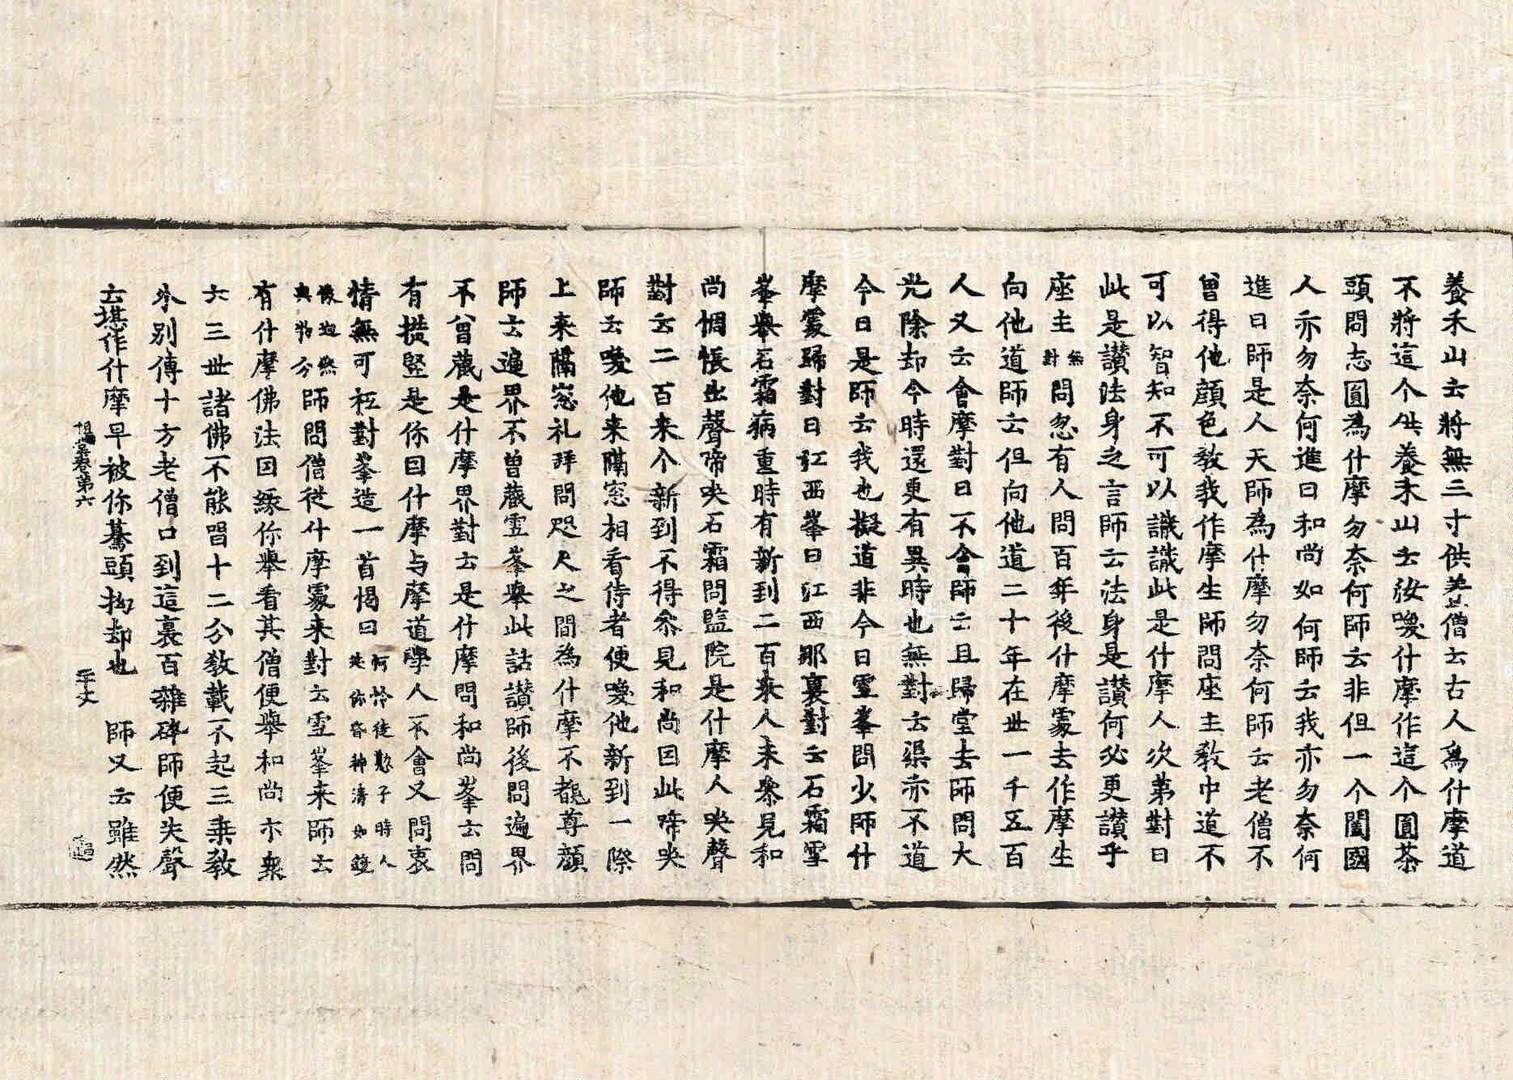 養禾山云將無三寸供养僧云古人為什摩道
不將這个供養禾山云汝喚什摩作這个圓茶
頭問志圓為什摩勿奈何師云非但一个闔國
人亦勿奈何進曰和尚如何師云我亦勿奈何
進曰師是人天師為什摩勿奈何師云老僧不
曾得他顔色教我作摩生師問座主教中道不
可以智知不可以識識此是什摩人次第對曰
此是讃法身之言師云法身是讃何必更讃乎
座主無對問忽有人問百年後什摩處去作摩生
向他道師云但向他道二十年在世一千五百
人又云會摩對曰不會師云且歸堂去師問大
光除却今時還更有異時也無對云渠亦不道
今日是師云我也擬道非今日雪峯問少師什
摩處歸對曰江西峯曰江西那裏對云石霜雪
峯舉石霜病重時有新到二百来人未叅見和
尚惆悵出聲啼哭石霜問監院是什摩人哭聲
對云二百来个新到不得叅見和尚因此啼哭
師云喚他来隔窓相看侍者便喚他新到一際
上来隔窓礼拜問咫尺之間為什摩不覩尊顔
師云遍界不曾藏雪峯舉此話讃師後問遍界
不曾藏是什摩界對云是什摩問和尚峯云問
有撗竪是你因什摩与摩道學人不會又問衷
情無可柾對峯造一首偈曰 可怜徒歎子時人
是你容神清如鏡
像迥然
與物分師問僧從什摩處来對云雪峯来師云
有什摩佛法因緣你舉看其僧便舉和尚示衆
云三世諸佛不能唱十二分教載不起三乘教
外別傳十方老僧口到這裏百雜碎師便失聲
云堪作什摩早被你驀頭拗却也 師又云雖然
卷第六